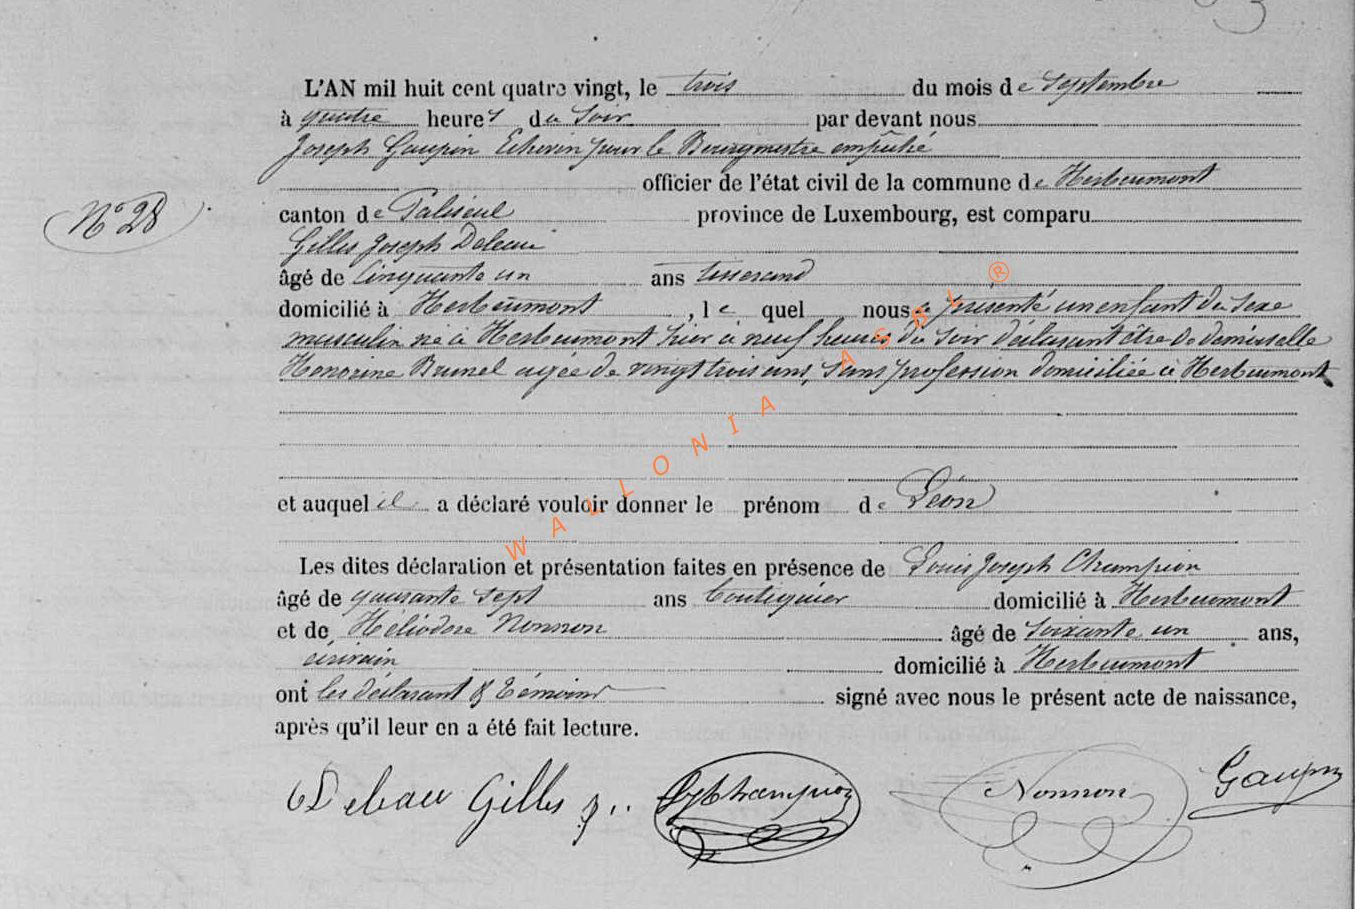 L'AN mil huit cent quatre vingt, le trois du mois de Septembre
à quatre heures du Soir par devant nous
Joseph Gaupin Echevin pour le Bourgmestre empêché
officier de l'état civil de la commune de Herbeumont
N° 28
canton de Paliseul province de Luxembourg, est comparu
Gilles Joseph
âgé de Cinquante un ans tisserand
domicilié à Herbeumont, le quel nous a présenté un enfant du Sexe
musculin né à Herbeumont hier à neuf heures du Soir déclarant être de demoiselle
Honorine Brunel agée de vingt trois ans, Sans profession domiciliée à Herbeumont
et auquel il a déclaré vouloir donner le prénom de Léon
Les dites déclaration et présentation faites en présence de Louis Joseph Champion
âgé de quarante Sept ans boutiquier domicilié à Herbeumont
et de Héliodore Nonnon âgé de Soixante un ans,
écrivain domicilié à Herbeumont
ont les déclarant & témoins signé avec nous le présent acte de naissance,
après qu'il leur en a été fait lecture.
Gilles j. Champion Nonnon Gaupin
WALLONIA ASBL ®